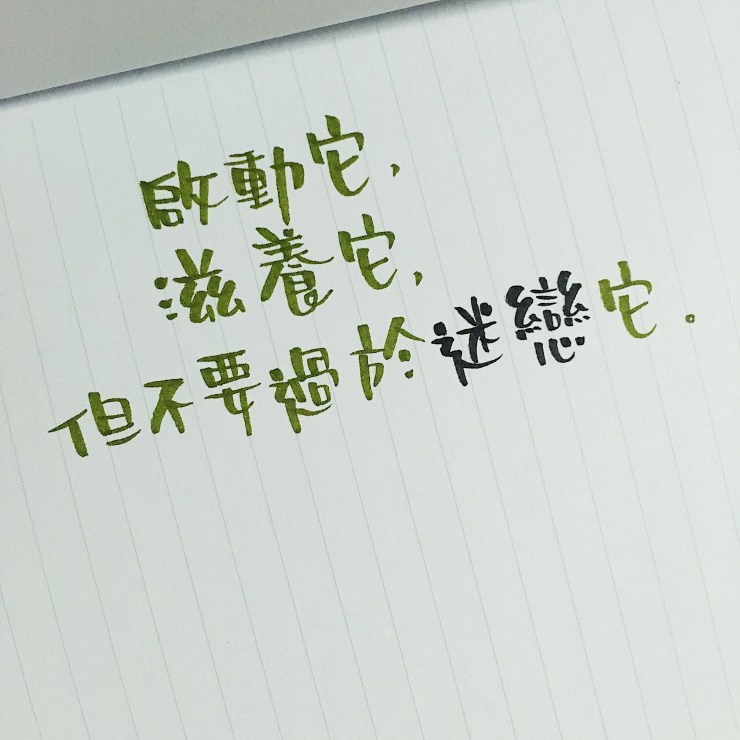 啟動它,
滋養它,
但不要過於迷戀它。